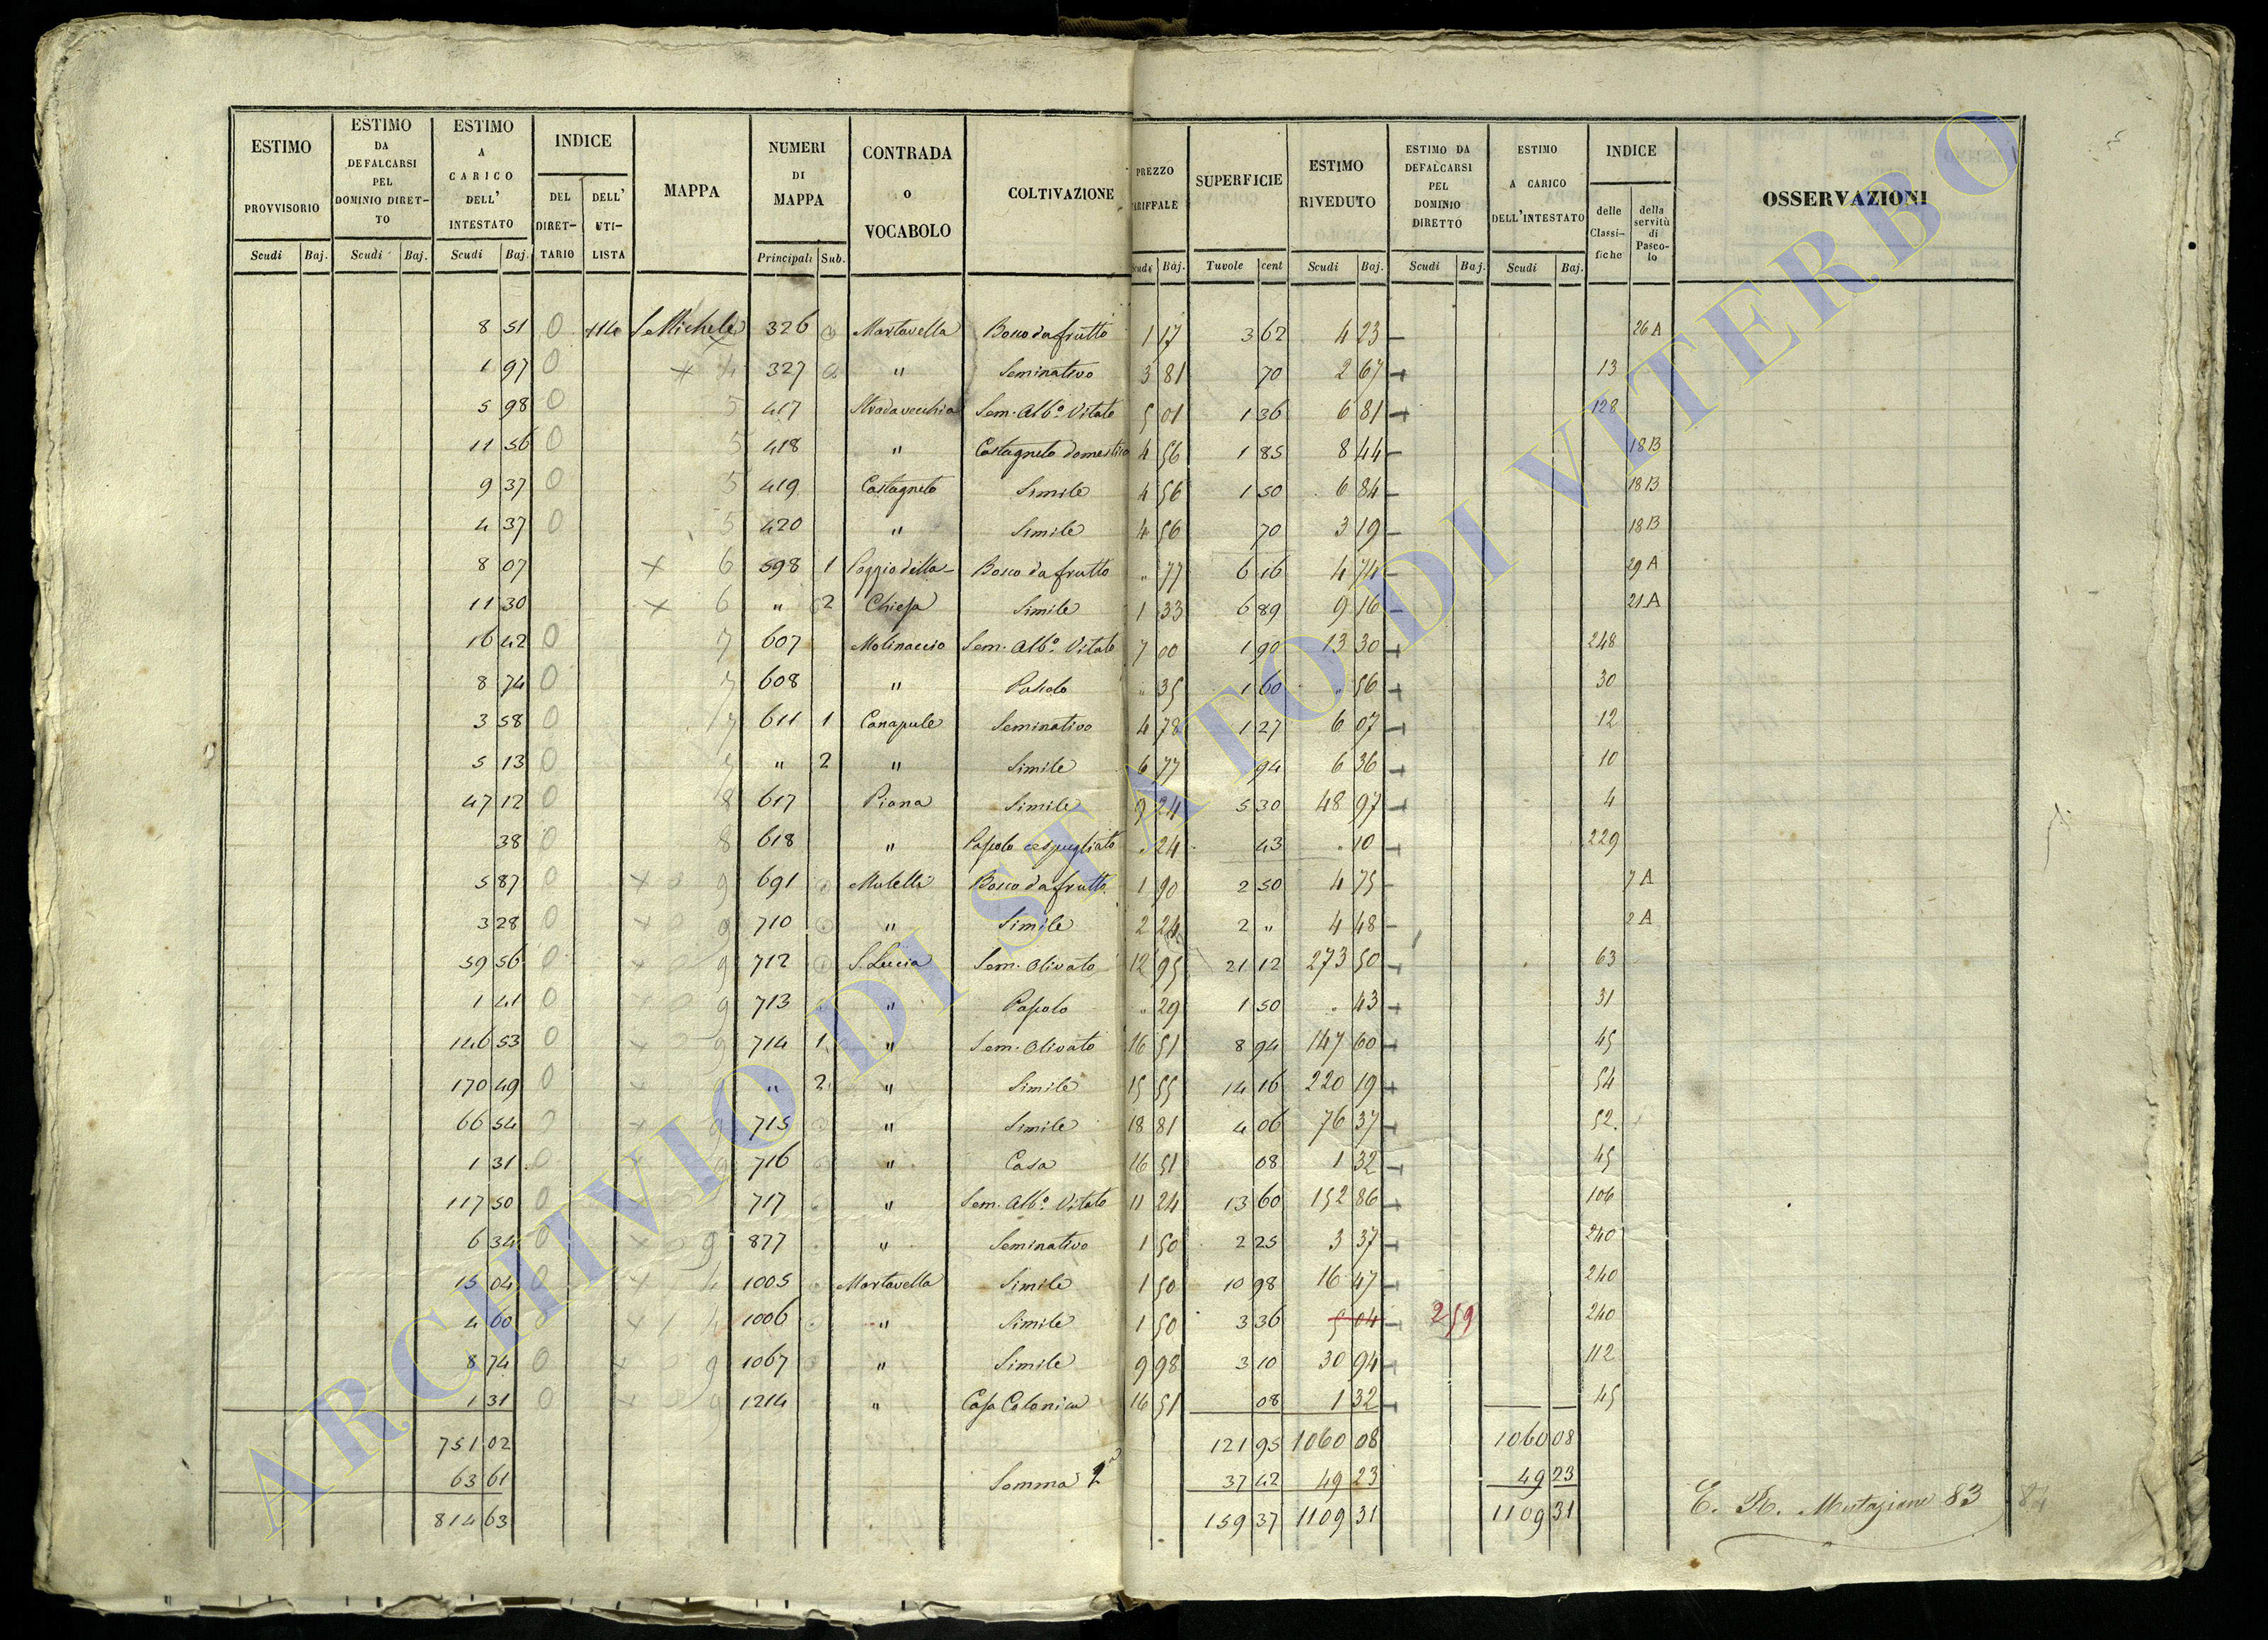 ESTIMO PROVVISORIO Scudi Baj.
ESTIMO DA DEFALCARSI PEL DOMINIO DIRET- TO Scudi Baj.
ESTIMO A CARICO DELL' INTESTATO Scudi Baj.
INDICE DEL DIRET- TARIO DELL' UTI- LISTA
MAPPA
NUMERI DI MAPPA Principali Sub.
CONTRADA O VOCABOLO
COLTIVAZIONE
PREZZO TARIFFALE Scudi Baj.
SUPERFICIE Tavole cent
ESTIMO RIVEDUTO Scudi Baj.
ESTIMO DA DEFALCARSI PEL DOMINIO DIRETTO Scudi Baj.
ESTIMO A CARICO DELL'INTESTATO Scudi Baj.
INDICE delle Classi- fiche della servitù di Pasco- lo
OSSERVAZIONI
8 51 0 114 S. Michele 326 Martavella Bosco da frutto 1 17 3 62 4 23 26 A
1 97 0 4 327 " Seminativo 3 81 70 2 67 13
5 98 0 5 417 Strada vecchia Sem. Alb.o Vitato 5 01 1 36 6 81 128
11 56 0 5 418 " Castagneto domestico 4 56 1 85 8 44 18 B
9 37 0 5 419 Castagneto Simile 4 56 1 50 6 84 18 B
4 37 0 5 420 " Simile 4 56 70 3 19 18 B
8 07 6 598 1 Poggio della Bosco da frutto " 77 6 16 4 74 29 A
11 30 6 " 2 Chiesa Simile 1 33 6 89 9 16 21 A
16 42 0 7 607 Molinaccio Sem. Alb.o Vitato 7 00 1 90 13 30 248
8 74 0 7 608 " Pascolo " 35 1 60 " 56 30
3 58 0 7 611 1 Canapule Seminativo 4 78 1 27 6 07 12
5 13 0 7 " 2 " Simile 6 77 94 6 36 10
47 12 0 8 617 Piana Simile 9 24 5 30 48 97 4
38 0 8 618 " Pascolo cespugliato " 24 43 " 10 229
5 87 0 9 691 Muletti Bosco da frutto 1 90 2 50 4 75 7 A
3 28 0 9 710 " Simile 2 24 2 " 4 48 2 A
59 56 0 9 712 S. Lucia Sem. Olivato 12 95 21 12 273 50 63
1 41 0 9 713 " Pascolo " 29 1 50 " 43 31
146 53 0 9 714 1 " Sem. Olivato 16 51 8 94 147 60 45
170 49 0 9 " 2 " Simile 15 55 14 16 220 19 54
66 54 0 9 715 " Simile 18 81 4 06 76 37 52
1 31 0 9 716 " Casa 16 51 08 1 32 45
117 50 0 717 " Sem. Alb.o Vitato 11 24 13 60 152 86 106
6 34 0 9 877 " Seminativo 1 50 2 25 3 37 240
15 04 0 4 1005 Martavella Simile 1 50 10 98 16 47 240
4 60 0 4 1006 " Simile 1 50 3 36 5 04 2 59 240
8 74 0 9 1067 " Simile 9 98 3 10 30 94 112
1 31 0 9 1214 " Casa Colonica 16 51 08 1 32 45
751 02 121 95 1060 08 1060 08
63 61 Somma 2a 37 42 49 23 49 23
814 63 159 37 1109 31 1109 31 E. R. Mutazione 83 84
ARCHIVIO DI STATO DI VITERBO